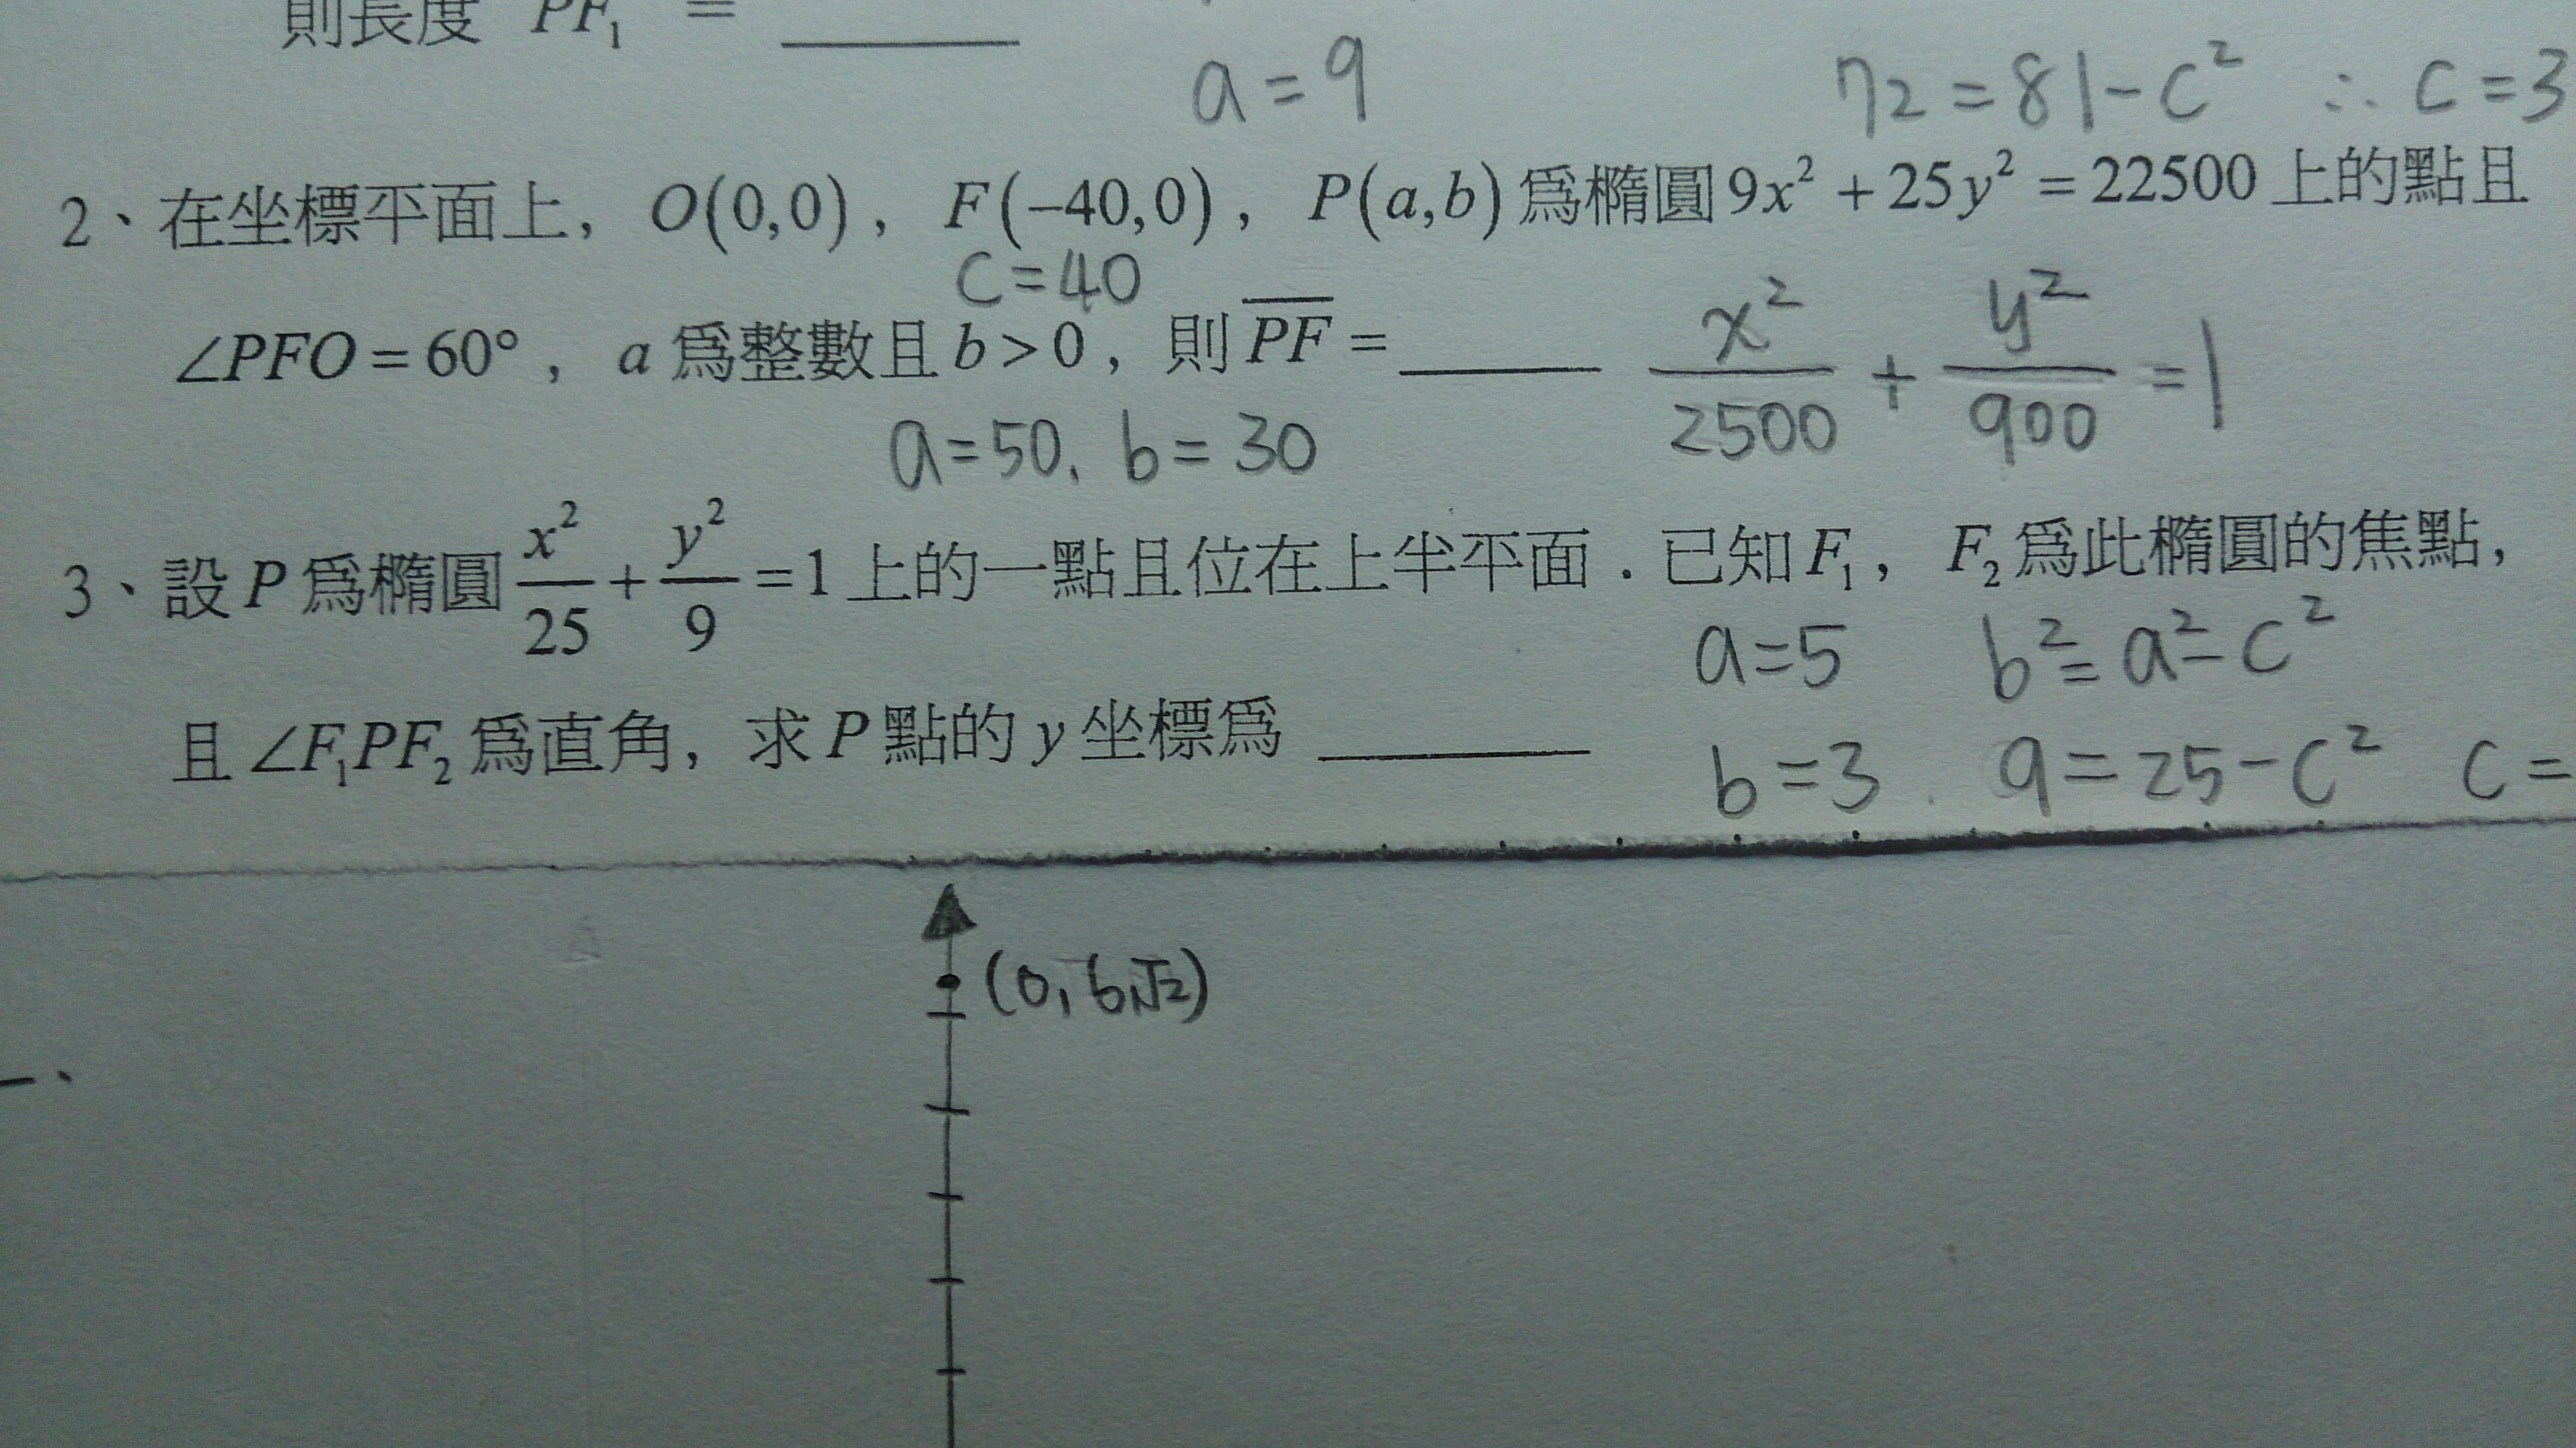 則長度 PF₁ = ______
a = 9
72 = 81 - c² ∴ c = 3
2、在坐標平面上，O(0,0)，F(−40,0)，P(a,b)爲橢圓9x² + 25y² = 22500上的點且
c = 40
∠PFO = 60°，a爲整數且b > 0，則PF̅ = ______ x²/2500 + y²/900 = 1
a = 50, b = 30
3、設P爲橢圓x²/25 + y²/9 = 1上的一點且位在上半平面．已知F₁，F₂爲此橢圓的焦點，
a = 5 b² = a² - c²
且∠F₁PF₂爲直角，求P點的y坐標爲 ______
b = 3 9 = 25 - c² c =
(0, 6√2)
一、